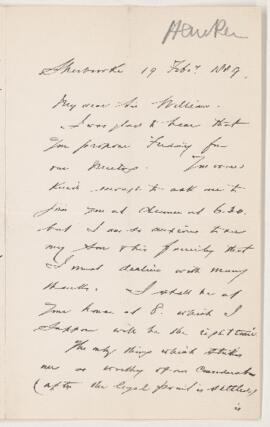 Sherbrooke 19 Feb.y 1889.
My dear Sir William.
I was glad to hear that
you propose Tuesday for
our meeting. You were
kind enough to ask me to
join you at dinner at 6.30.
but I am so anxious to see
my Son & his family that
I must decline with many
thanks. I shall be at
your house at 8. which I
suppose will be the right time.
The only thing which strikes
me as worthy of our Consideration
(after the legal point is settled)
is